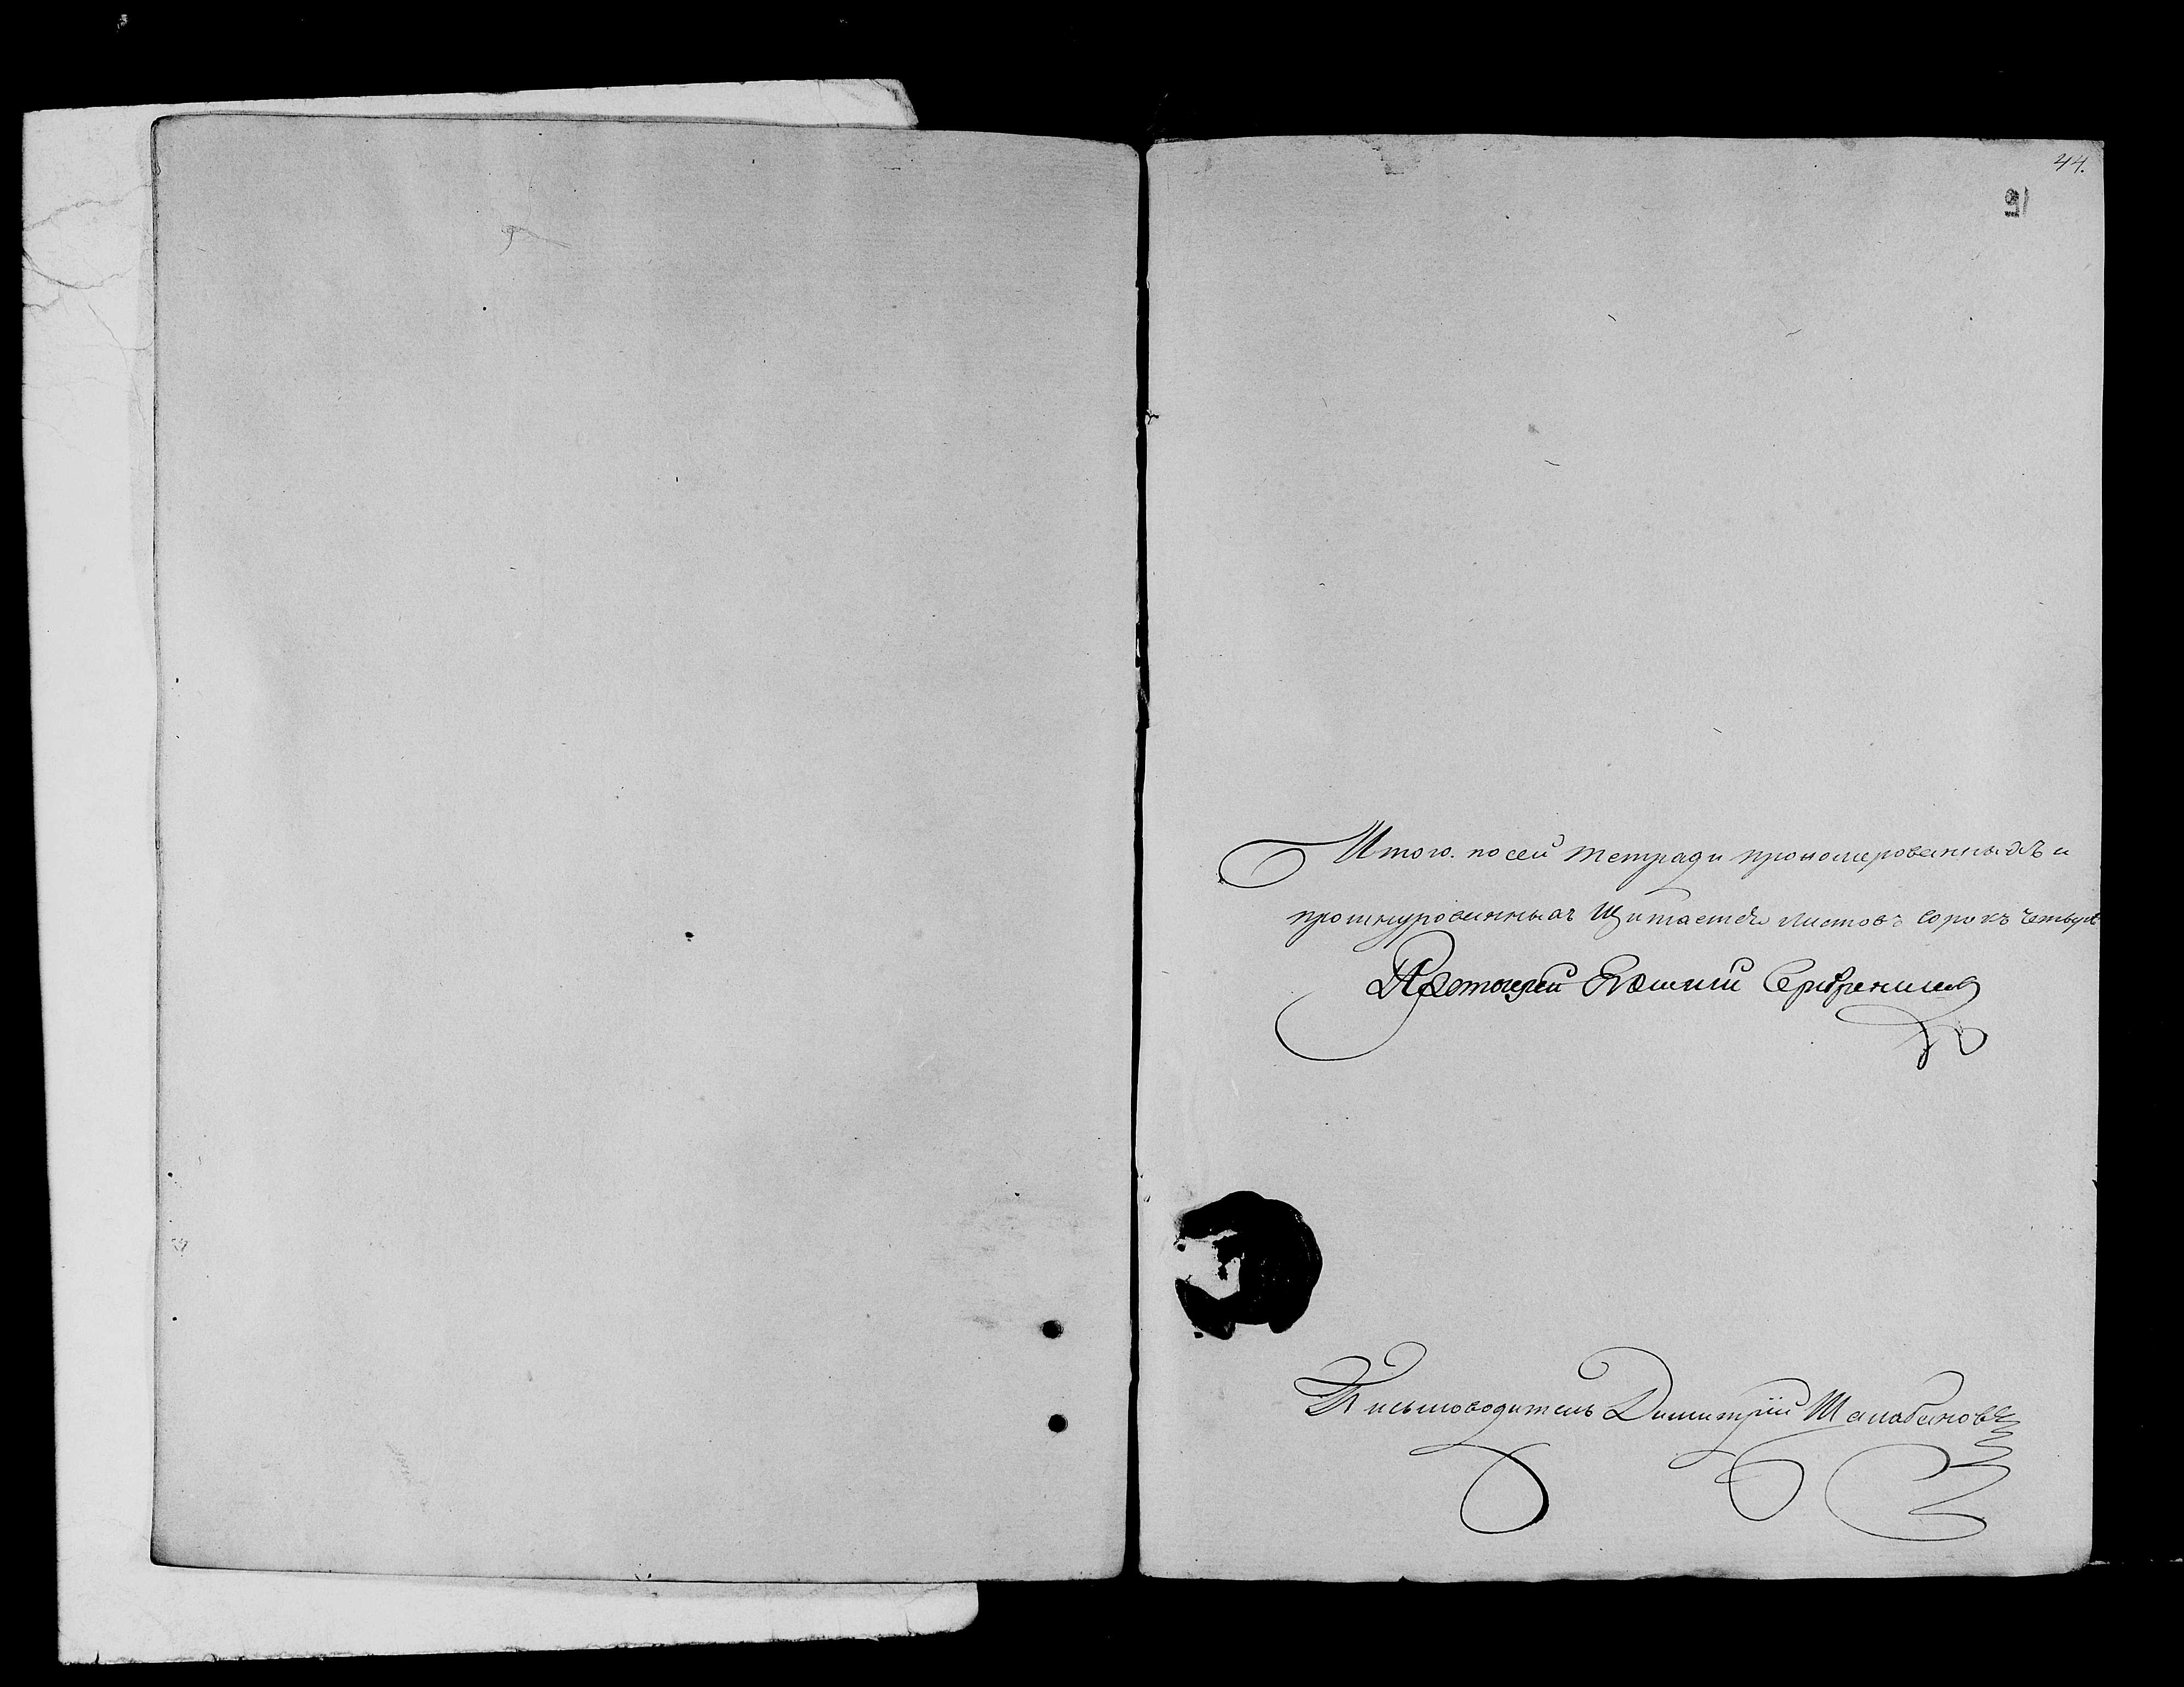 44.
Итого. по сей тетради прономерованныхъ и
прошнурованныхъ щитается листовъ сорокъ четыре
Протоіерей
Письмоводитель Димитрій Шалабановъ